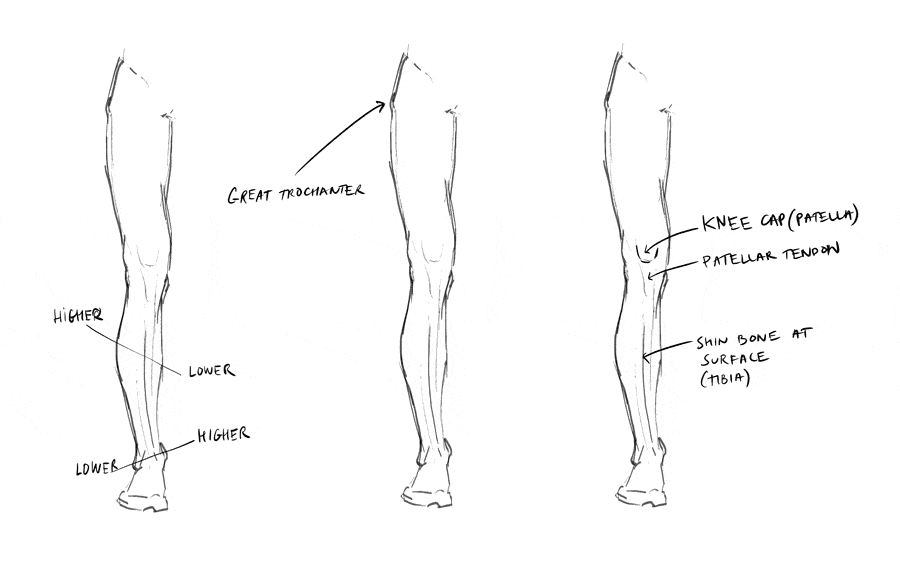 HIGHER
LOWER
HIGHER
LOWER
GREAT TROCHANTER
KNEE CAP (PATELLA)
PATELLAR TENDON
SHIN BONE AT
SURFACE
(TIBIA)